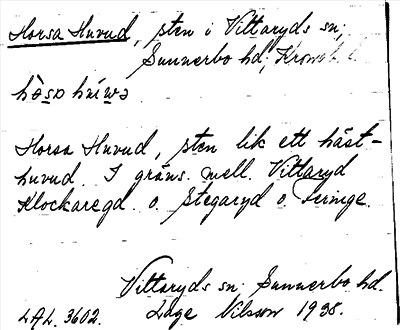 Horsa Huvud, sten i Vittaryds sn;
Sunnerbo hd; Kronob. l.
hòsɒ húwə
Horsa Huvud, sten lik ett häst-
huvud. I gräns. mell. Vittaryd
Klockaregd. o. Stegaryd o. Feringe.
Vittaryds sn. Sunnerbo hd.
LAL. 3602. Låge Nilsson 1935.